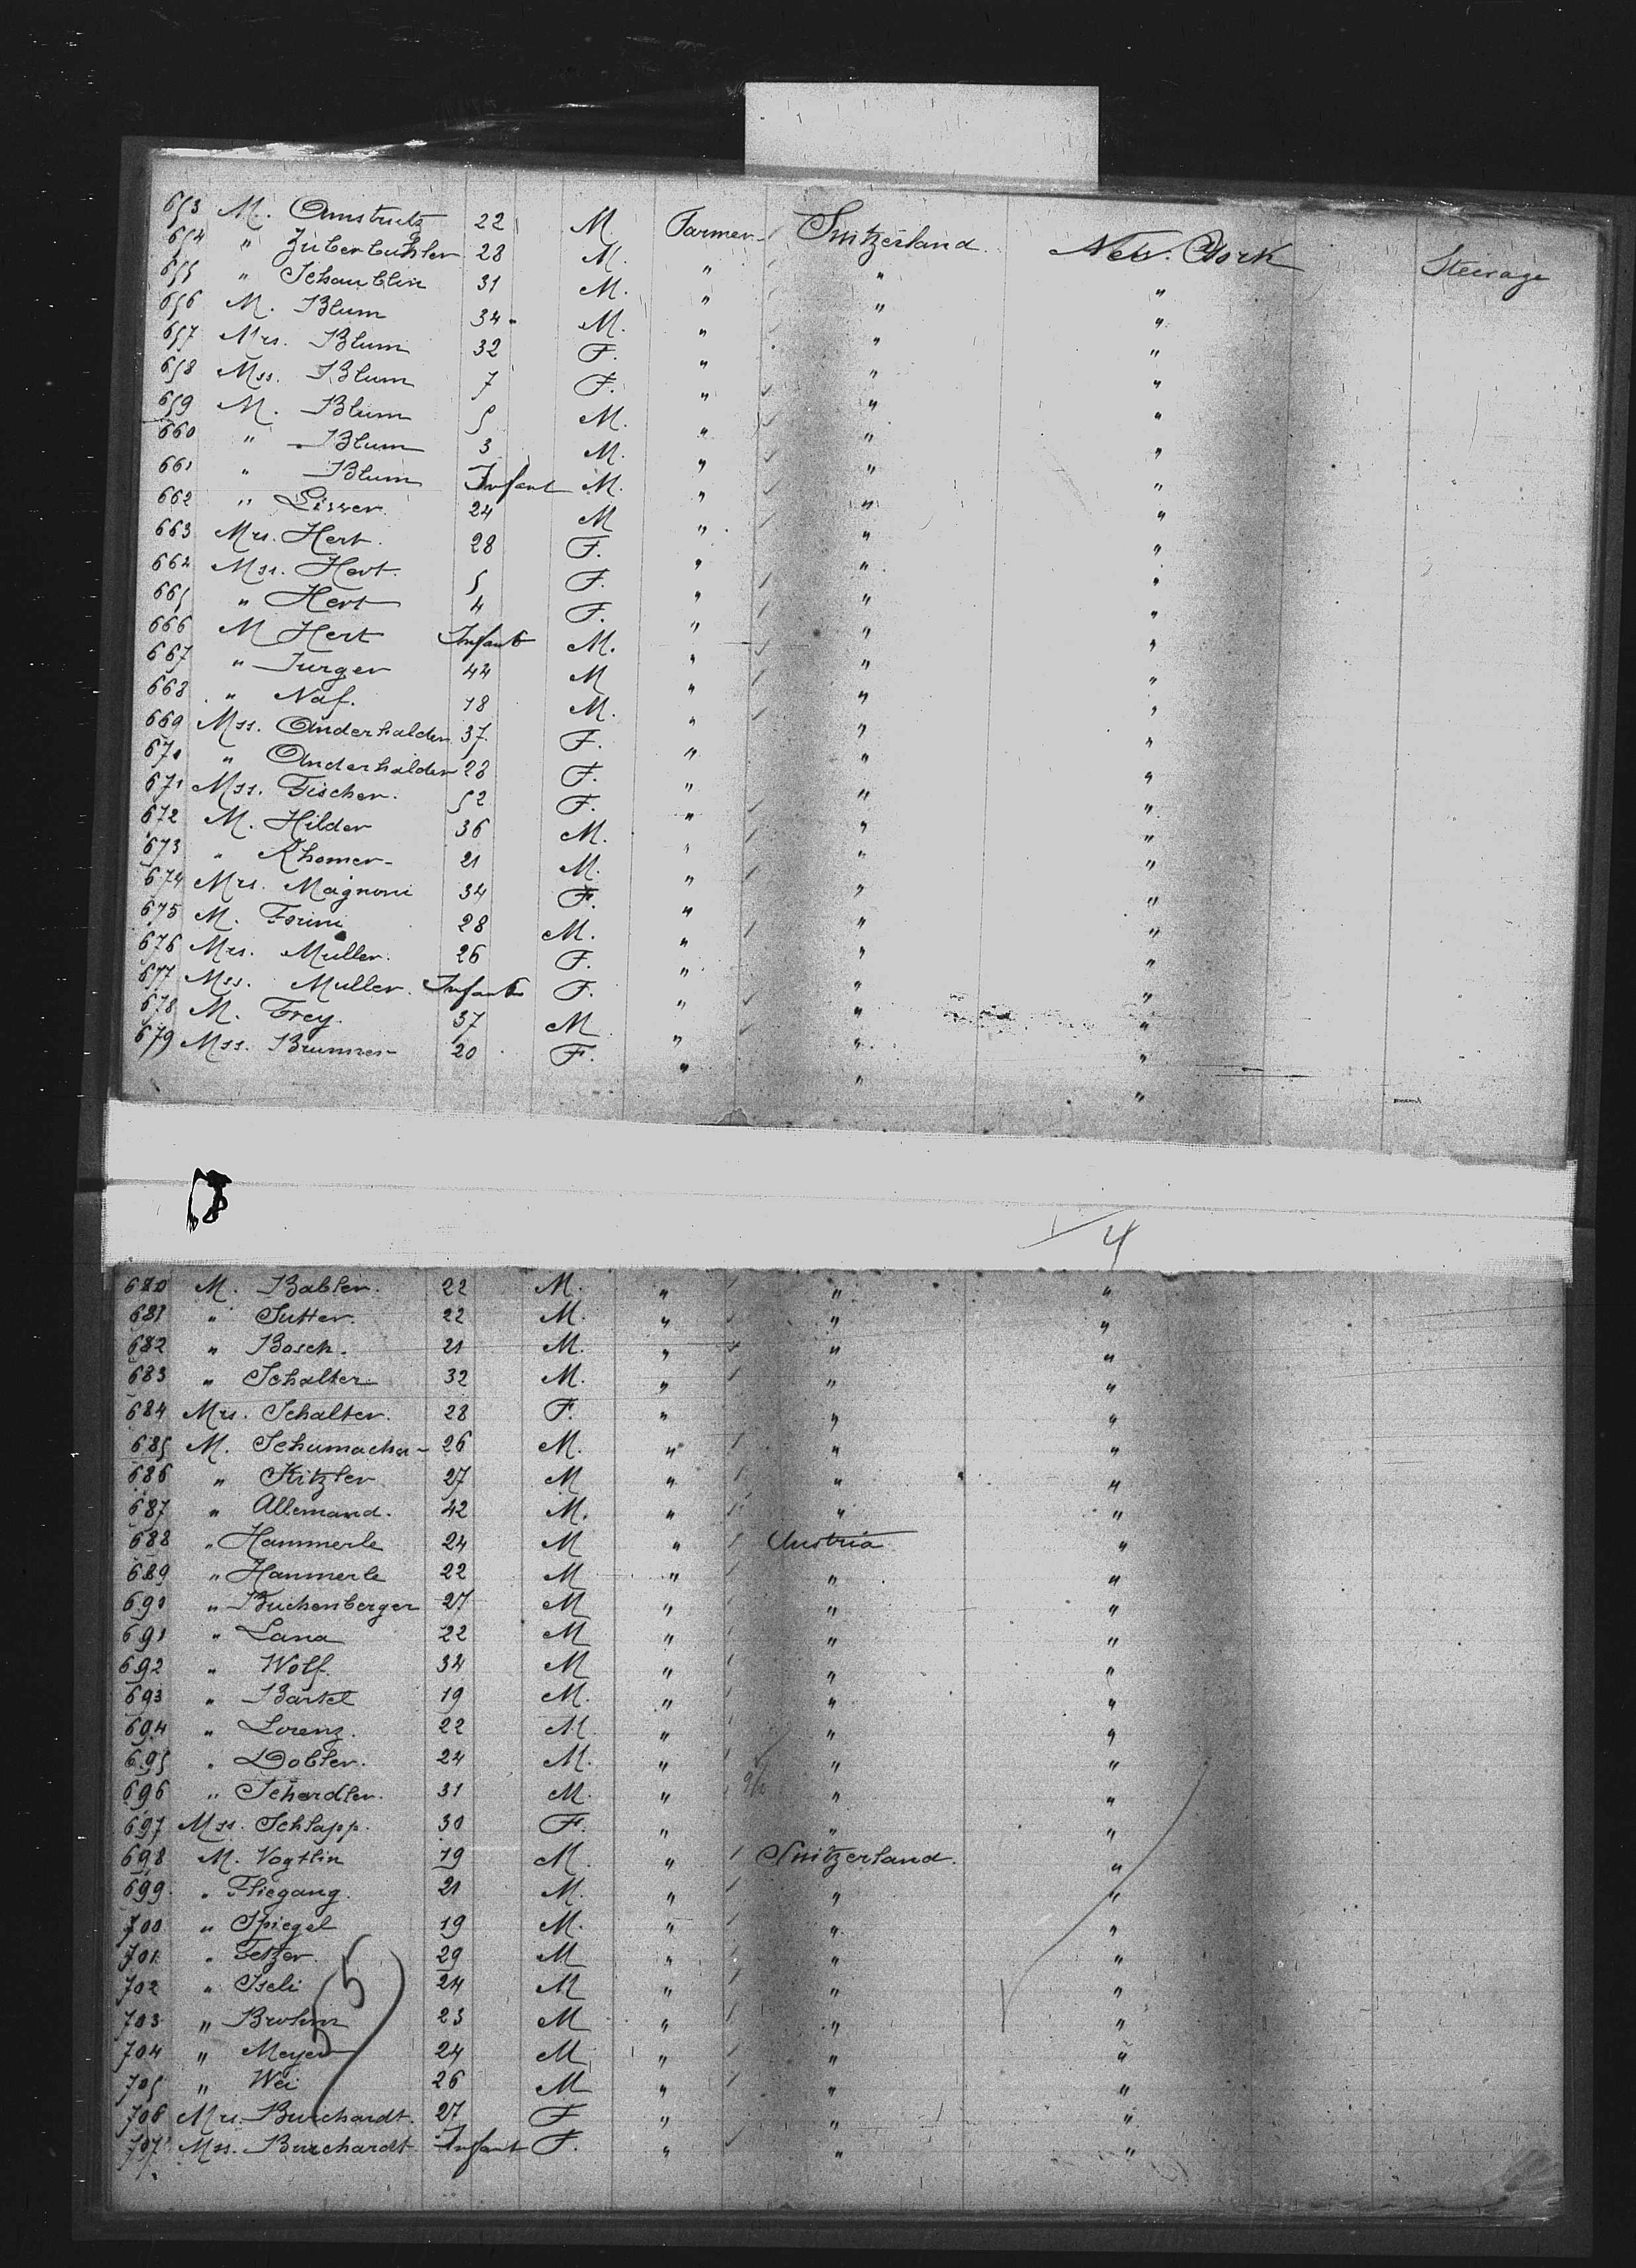 653 M. Amstutz 22 M Farmer Switzerland. New. York Steerage
654 " Zuberbuhler 28 M. " " "
655 " Schaublin 31 M. " " "
656 M. Blum 34 M. " " "
657 Mrs. Blum 32 F. " " "
658 Mss. Blum 7 F. " " "
659 M. Blum 5 M. " " "
660 " Blum 3 M. " " "
661 " Blum Infant M. " " "
662 " Lisser 24 M " " "
663 Mrs. Hert. 28 F. " " "
662 Mss. Hert. 5 F. " " "
665 " Hert 4 F. " " "
666 M Hert Infant M. " " "
667 " Jurger 44 M " " "
668 " Naf. 18 M. " " "
669 Mss. Anderhalden 37. F. " " "
670 " Anderhalden 28 F. " " "
671 Mss. Fischer. 52 F. " " "
672 M. Hilder 36 M. " " "
673 " Rhomer 21 M. " " "
674 Mrs. Magnoni 34 F. " " "
675 M. Forini 28 M. " " "
676 Mrs. Muller. 26 F. " " "
677 Mss. Muller. Infant F. " " "
678 M. Frey. 37 M " " "
679 Mss. Brunner 20 F. " " "
4
680 M. Babler. 22 M. " " "
681 " Sutter. 22 M. " " "
682 " Bosch. 21 M. " " "
683 " Schalter 32 M. " " "
684 Mrs. Schalter. 28 F. " " "
685 M. Schumacher 26 M. " " "
686 " Kitzler 27 M " " "
687 " Allemand. 42 M. " " "
688 " Hammerle 24 M " Austria "
689 " Hammerle 22 M " " "
690 " Buchenberger 27 M " " "
691 " Lana 22 M " " "
692 " Wolf. 34 M " " "
693 " Bartel 19 M. " " "
694 " Lorenz. 22 M. " " "
695 " Dobler. 24 M. " " "
696 " Schardler. 31 M. " " "
697 Mss. Schlapp. 30 F. " " "
698 M. Vogtlin 19 M. " Switzerland. "
699 " Fliegang. 21 M. " " "
700 " Spiegel 19 M. " " "
701 " Fetzer. 29 M " " "
702 " Iseli 24 M " " "
703 " Brohm 23 M " " "
704 " Meyer 24 M " " "
705 " Wei 26 M " " "
706 Mrs. Burchardt. 27 F " " "
707 Mss. Burchardt Infant F. " " "